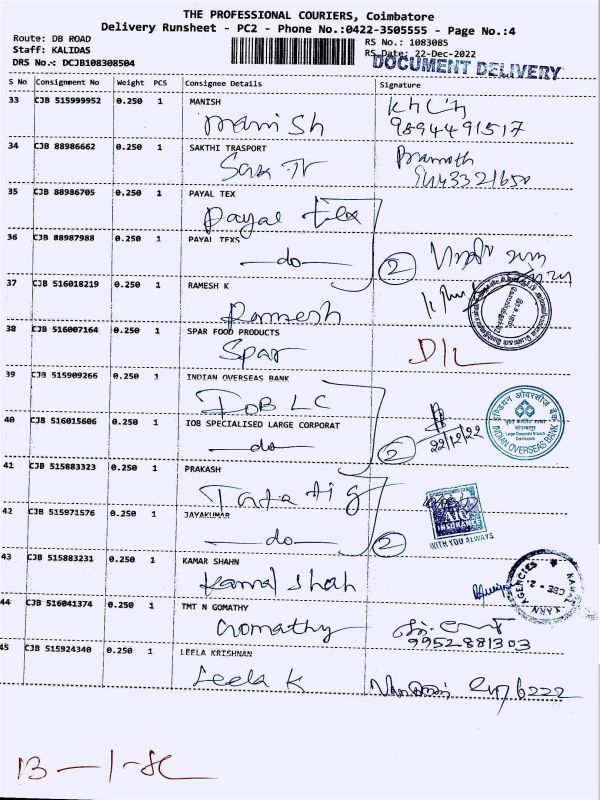 THE PROFESSIONAL COURIERS, Coimbatore
Delivery Runsheet - PC2 - Phone No.:0422-3505555 - Page No.:4
Route: DB ROAD RS No.: 1083085
Staff: KALIDAS RS Date: 22-Dec-2022
DRS No.: DCJB108308504 DOCUMENT DELIVERY
S No Consignment No Weight PCS Consignee Details Signature
33 CJB 515999952 0.250 1 MANISH
Manish 9894491517
34 CJB 88986662 0.250 1 SAKTHI TRASPORT
Sak Tr Pramoth
35 CJB 88986705 0.250 1 PAYAL TEX
Payal Tex
36 CJB 88987988 0.250 1 PAYAL TEXS
—do— 2
37 CJB 516018219 0.250 1 RAMESH K
Ramesh
38 CJB 516007164 0.250 1 SPAR FOOD PRODUCTS
Spar D/L
39 CJB 515909266 0.250 1 INDIAN OVERSEAS BANK
IOB LC
इण्डियन ओवरसीज़ बैंक
Large Corporate Branch
Coimbatore
INDIAN OVERSEAS BANK
40 CJB 516015606 0.250 1 IOB SPECIALISED LARGE CORPORAT
—do— 2 22/12/22
41 CJB 515883323 0.250 1 PRAKASH
Tata Aig
42 CJB 515971576 0.250 1 JAYAKUMAR
—do— 2
INSURANCE
WITH YOU ALWAYS
43 CJB 515883231 0.250 1 KAMAR SHAHN
Kamal Shah
AGENCIES
CBE - 2
44 CJB 516041374 0.250 1 TMT N GOMATHY
Gomathy 9952881303
45 CJB 515924340 0.250 1 LEELA KRISHNAN
Leela K